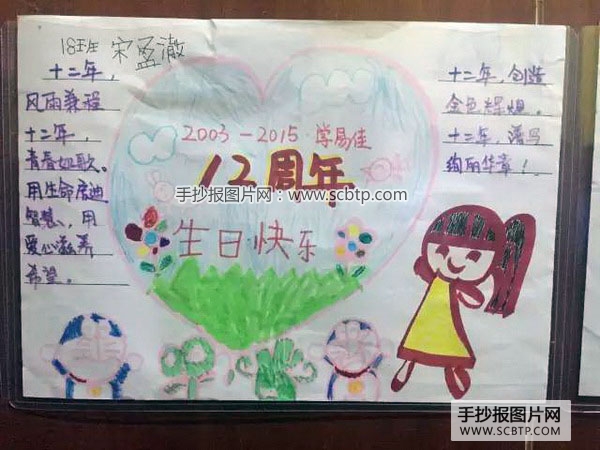 18班 宋盈澈
十二年，
风雨兼程
十二年，
青春如歌。
用生命启迪
智慧，用
爱心滋养
希望。
2003-2015 学易佳
12周年
手抄报图片网：www.scbtp.com
生日快乐
十二年，创造
金色辉煌。
十二年，谱写
绚丽华章！
手抄报图片网
WWW.SCBTP.COM